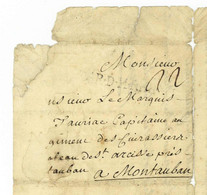 Monsieur
22
nsieur Le Marquis
Tauriac Capitaine au
giment des Cuirassiers
ateau de st. arcisse près
tauban a Montauban